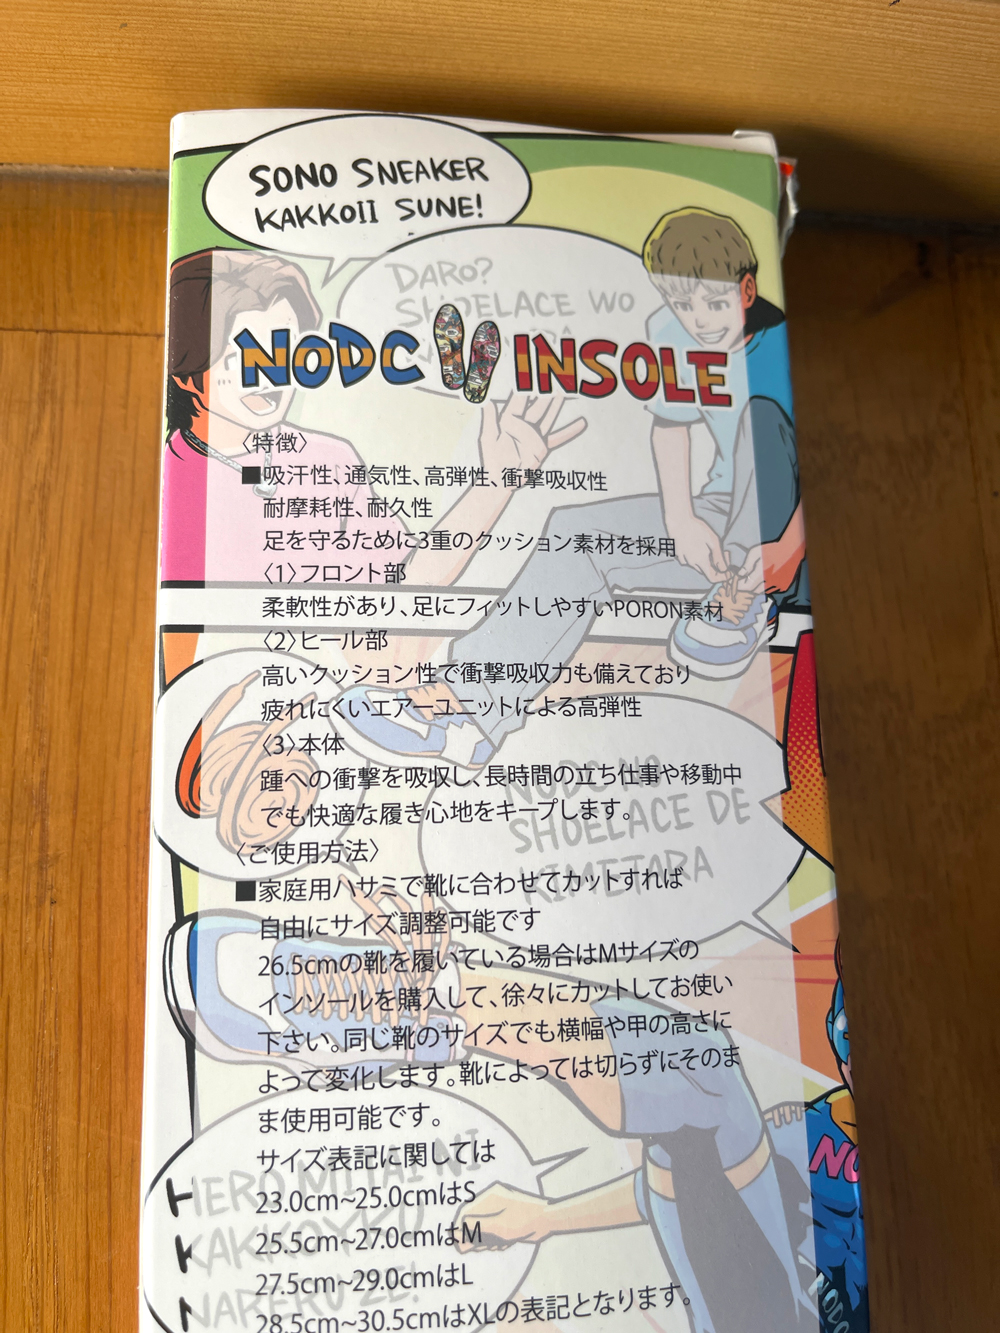 SONO SNEAKER
KAKKOII SUNE!
DARO?
SHOELACE WO
NODC INSOLE
〈特徴〉
■吸汗性、通気性、高弾性、衝撃吸収性
耐摩耗性、耐久性
足を守るために3重のクッション素材を採用
〈1〉フロント部
柔軟性があり、足にフィットしやすいPORON素材
〈2〉ヒール部
高いクッション性で衝撃吸収力も備えており
疲れにくいエアーユニットによる高弾性
〈3〉本体
踵への衝撃を吸収し、長時間の立ち仕事や移動中
でも快適な履き心地をキープします。
NODC NO
SHOELACE DE
KIMETARA
〈ご使用方法〉
■家庭用ハサミで靴に合わせてカットすれば
自由にサイズ調整可能です
26.5cmの靴を履いている場合はMサイズの
インソールを購入して、徐々にカットしてお使い
下さい。同じ靴のサイズでも横幅や甲の高さに
よって変化します。靴によっては切らずにそのま
ま使用可能です。
サイズ表記に関しては
23.0cm~25.0cmはS
25.5cm~27.0cmはM
27.5cm~29.0cmはL
28.5cm~30.5cmはXLの表記となります。
HERO MITAI NI
KAKKOYKU
NARERU ZE!